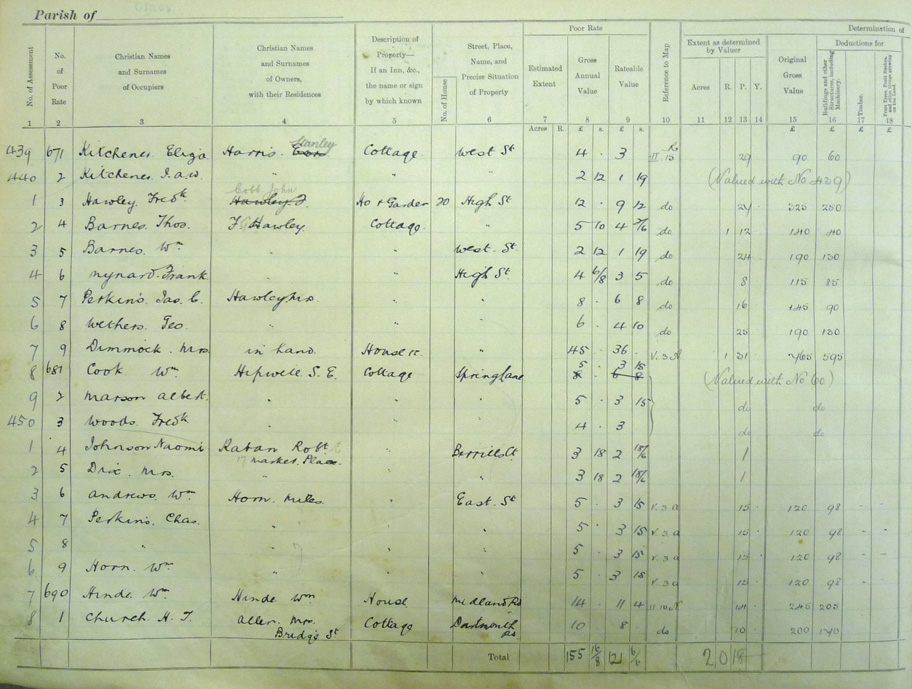 Parish of Olney
Poor Rate
Determination of
No. of Assessment
No. of Poor Rate
Christian Names and Surnames of Occupiers
Christian Names and Surnames of Owners, with their Residences
Description of Property— If an Inn, &c., the name or sign by which known
No. of House
Street, Place, Name, and Precise Situation of Property
Estimated Extent
Gross Annual Value
Rateable Value
Reference to Map
Extent as determined by Valuer
Acres R. P. Y.
Original Gross Value
Deductions for
Buildings and other Structures, including Machinery.
Timber.
1 2 3 4 5 6 7 8 9 10 11 12 13 14 15 16 17 18
Acres R. £ s. £ s. £ £ £ £
439 671 Kitchener Eliza Harris Stanley Cottage West St 4 . 3 29 90 60
440 2 Kitchener J.a.w. " " 2 12 1 19 (Valued with No 439)
1 3 Hawley Fredk Cobb John Hawley F Ho & Garden 20 High St 12 . 9 12 do 24 325 250
2 4 Barnes Thos. Hawley Cottage " 5 10 4 do 1 12
3 5 Barnes Wm " " West St 2 12 1 19 do 24 190 130
4 6 Mynard Frank " " High St 4 6/8 3 5 do 8 115 85
5 7 Perkins Jas. C. Hawley " " 8 . 6 8 do 16 145 90
6 8 Wethers Geo. " " " 6 . 4 10 do 25 190 130
7 9 Dimmock Mrs in hand House &c. " 45 . 36 . 1 31 595
8 681 Cook Wm Hipwell S. E. Cottage Spring Lane 5 . 3 15 8 . 6 8 (Valued with No 60)
9 2 Marson Albert " " " 5 . 3 15 do do
450 3 Woods Fredk " " " 4 . 3 do do
1 4 Johnson Naomi Raban Robt " Berrills Ct 3 18 2 18/6 1
17 Market Place
2 5 Dix Mrs. " " " 3 18 2 18/6 1
3 6 Andrews Wm Horn Miles " East St 5 . 3 15 V.3.a 15 120 98
4 7 Perkins Chas. " " " 5 . 3 15 V.3.a 15 120 98
5 8 " " " " 5 . 3 15 V.3.a 15 120 98
6 9 Horn Wm " " " 5 . 3 15 V.3.a 15 120 98
7 690 Hinde Wm Hinde Wm House Midland Rd 14 . 11 4 245 205
8 1 Church H. J. Allen Mrs. Cottage Dartmouth Rd 10 8 . do 10 200 170
Bridge St
Total 155 16/8 121 6/6 2 0 18